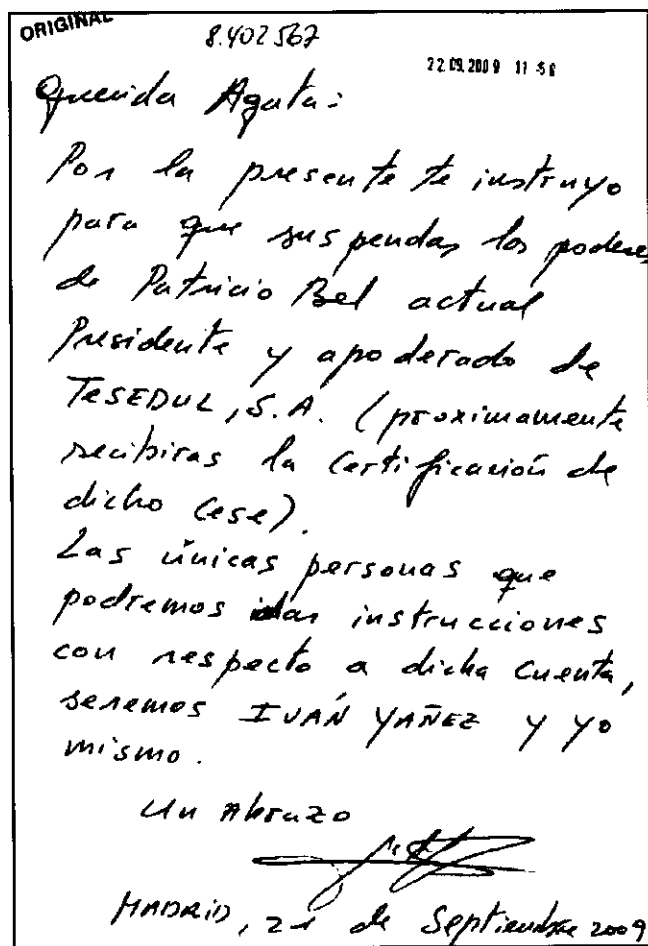 ORIGINAL
8.402567
22.09.2009 11:58
Querida Agata:
Por la presente te instruyo
para que suspendas los poderes
de Patricio Bel actual
Presidente y apoderado de
TESEDUL, S.A. (proximamente
recibiras la Certificación de
dicho Cese).
Las únicas personas que
podremos dar instrucciones
con respecto a dicha cuenta,
seremos IVÁN YAÑEZ y yo
mismo.
Un Abrazo
MADRID, 21 de Septiembre 2009